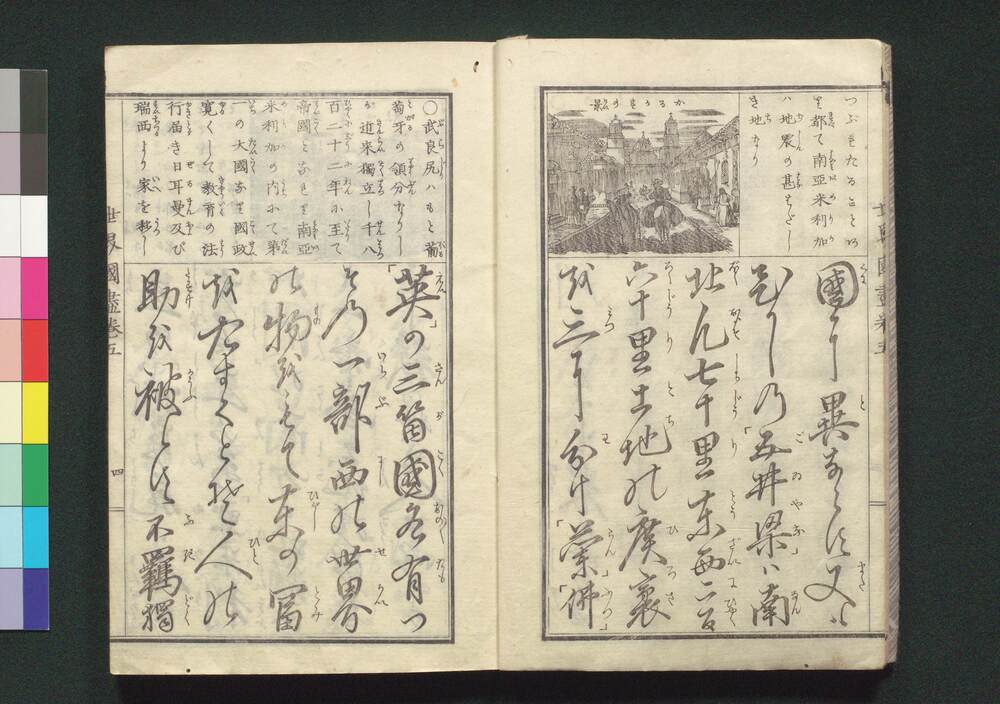 つぶれたることあ
り都て南亞米利加
ハ地震の甚はだし
き地なり
國に異ならず又
乃「五井梁」ハ南
北凡七十里東西二百
六十里土地の廣袤
を三に分け「蘭」「佛」
世界國盡巻五
〇武良尻ハもと葡
萄牙の領分なりし
が近来獨立し千八
百二十二年に至て
帝國となれり南亞
米利加の内にて第
一の大國なり國政
寛くして教育の法
行届き日耳曼及び
瑞西より家を移し
「英」の三箇國各有つ
その一部西の世界
の物をもて東の冨
をたすくとぞ人の
助を被らず不羈獨
世界國盡巻五
四